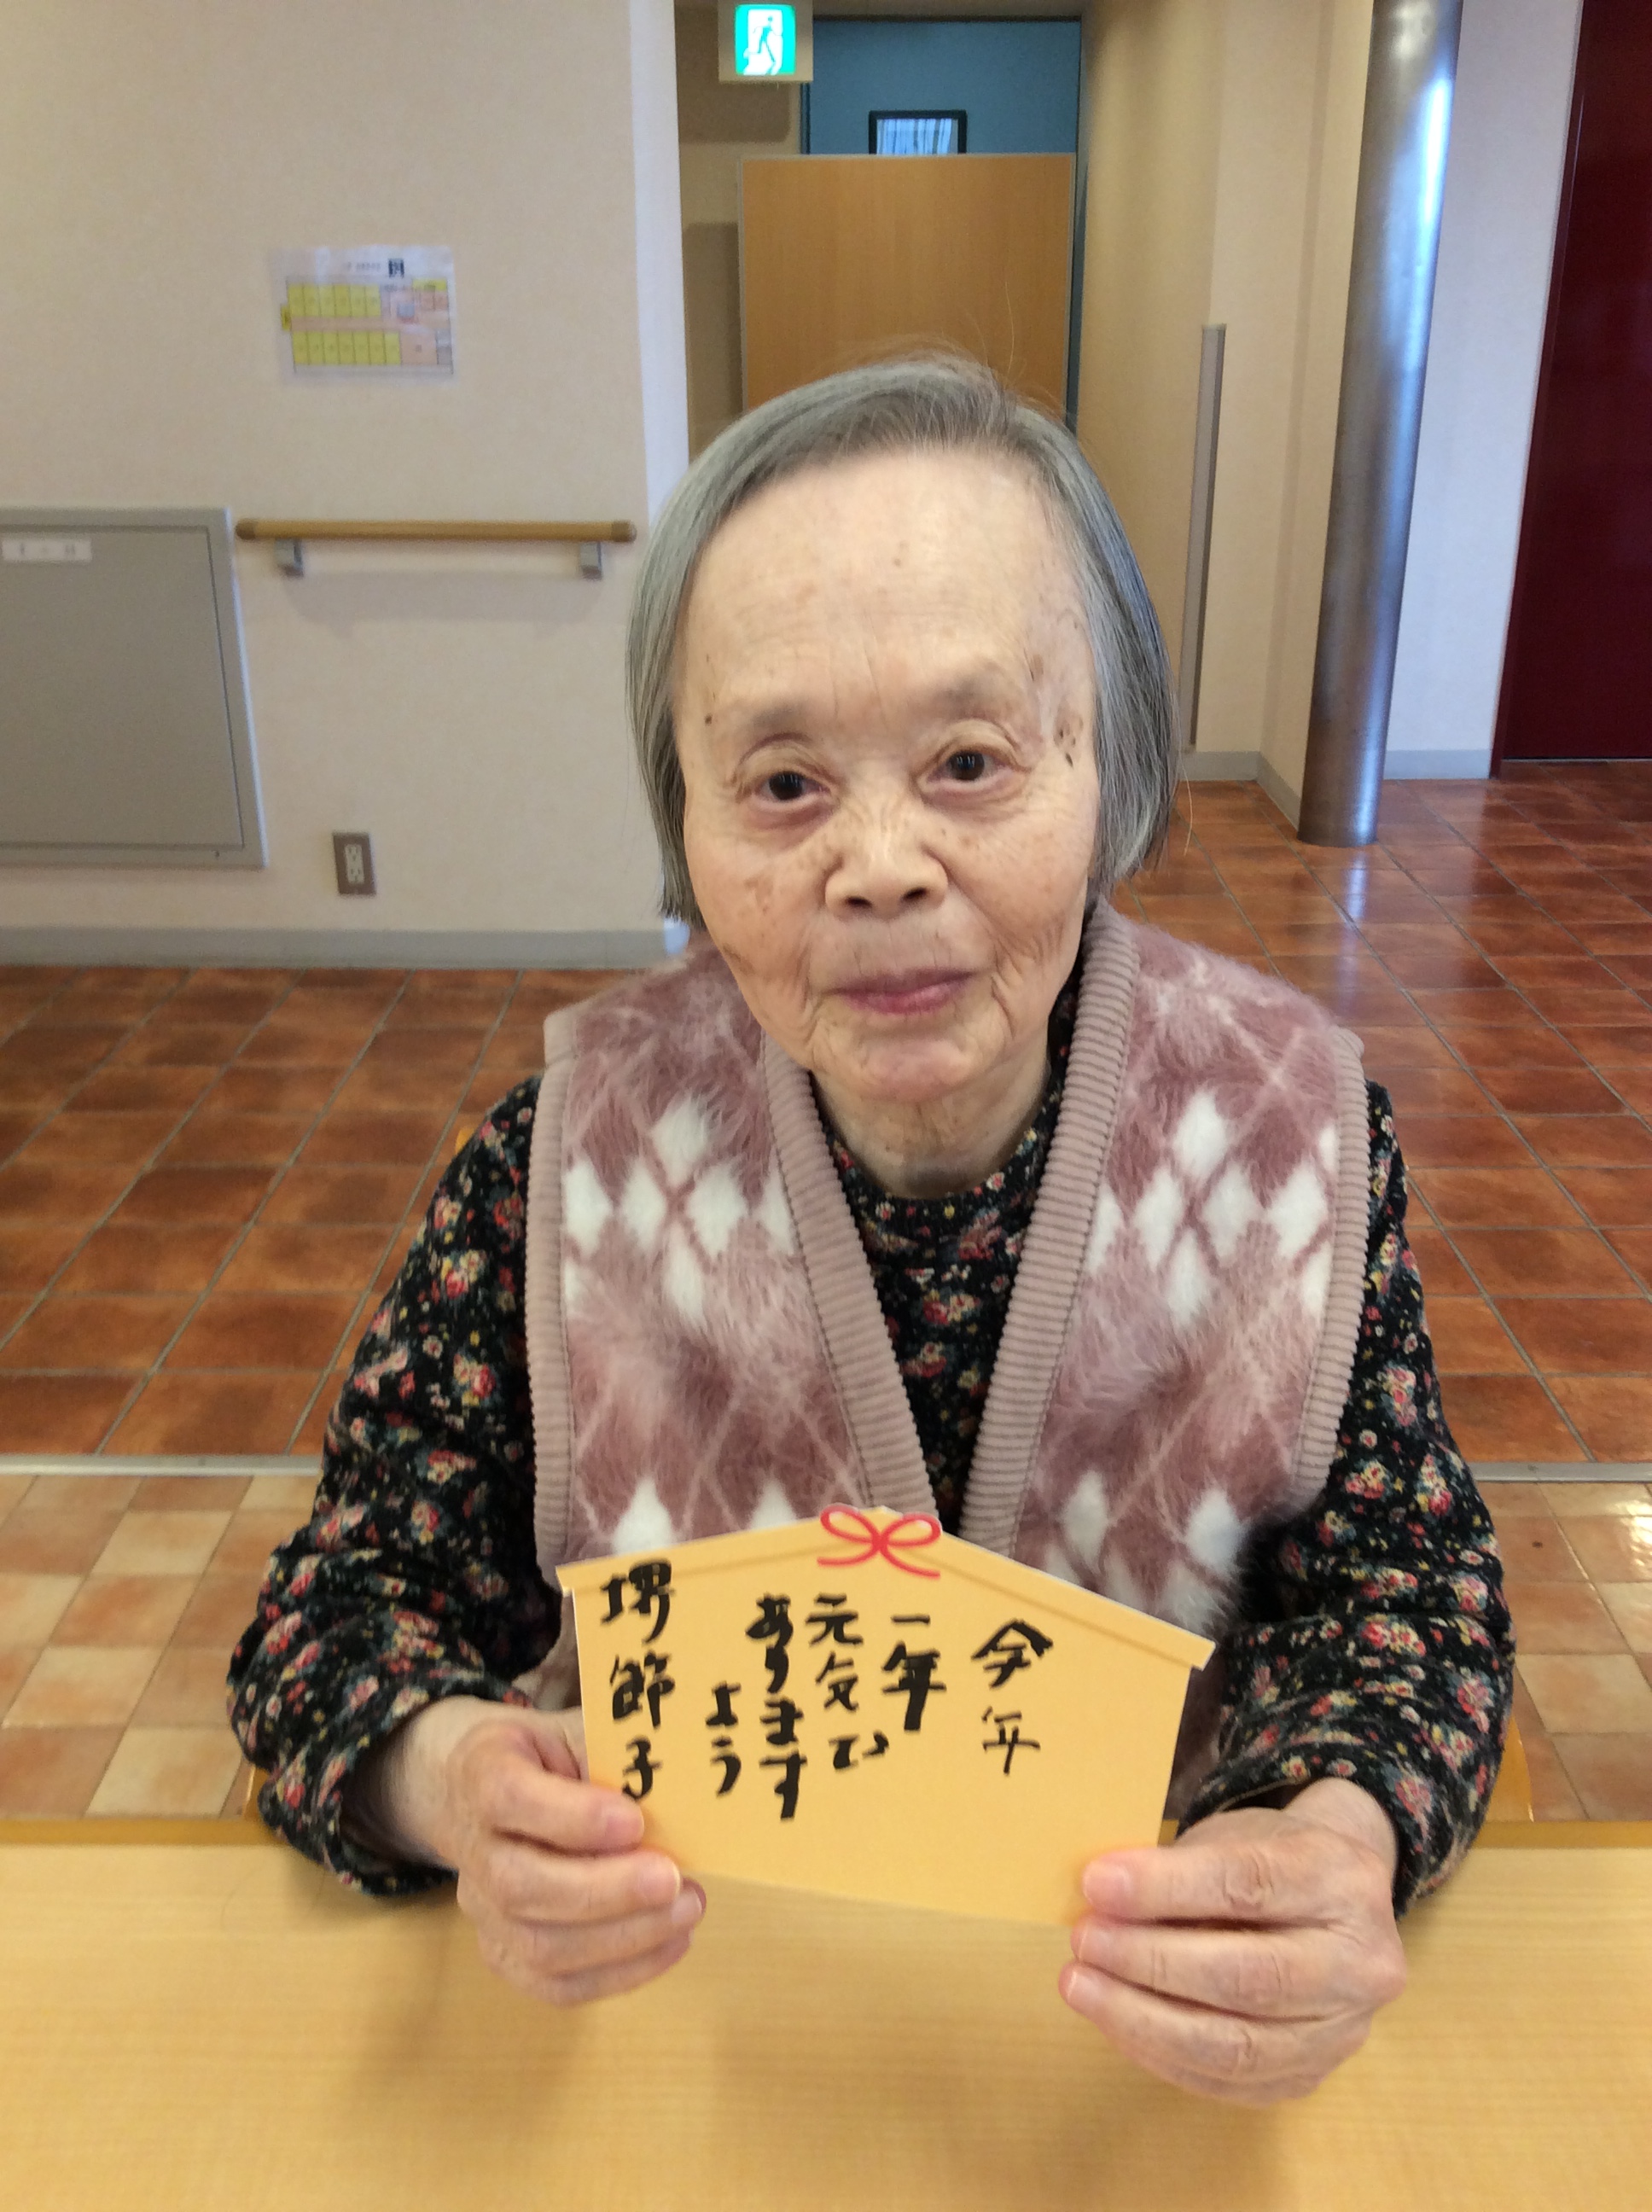 今年
一年
元気で
あります
よう
堺節子